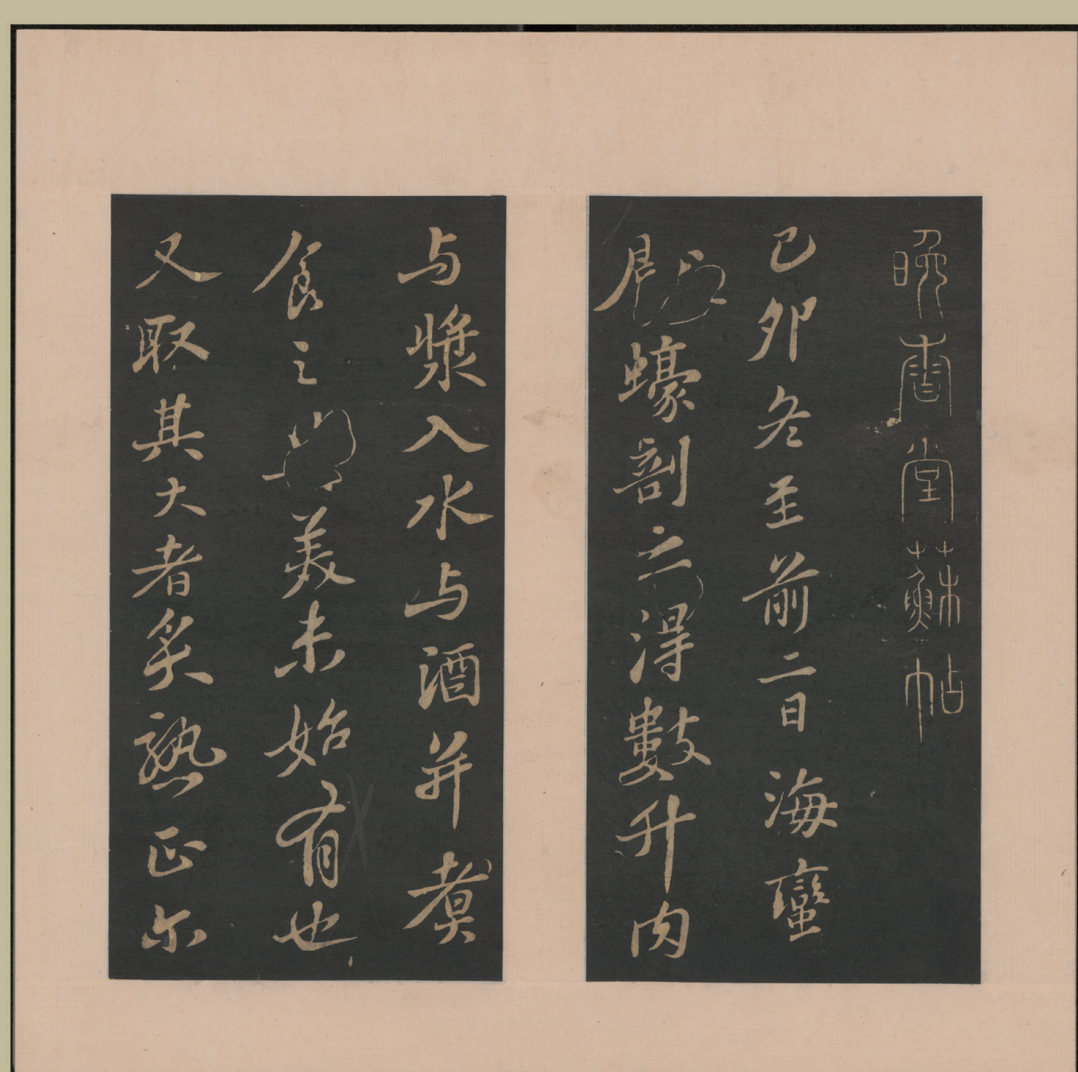 晚香堂蘇帖
己卯冬至前二日海蠻
蠔剖之得數升肉
与漿入水与酒并煑
食之美未始有也
又取其大者炙熟正尔